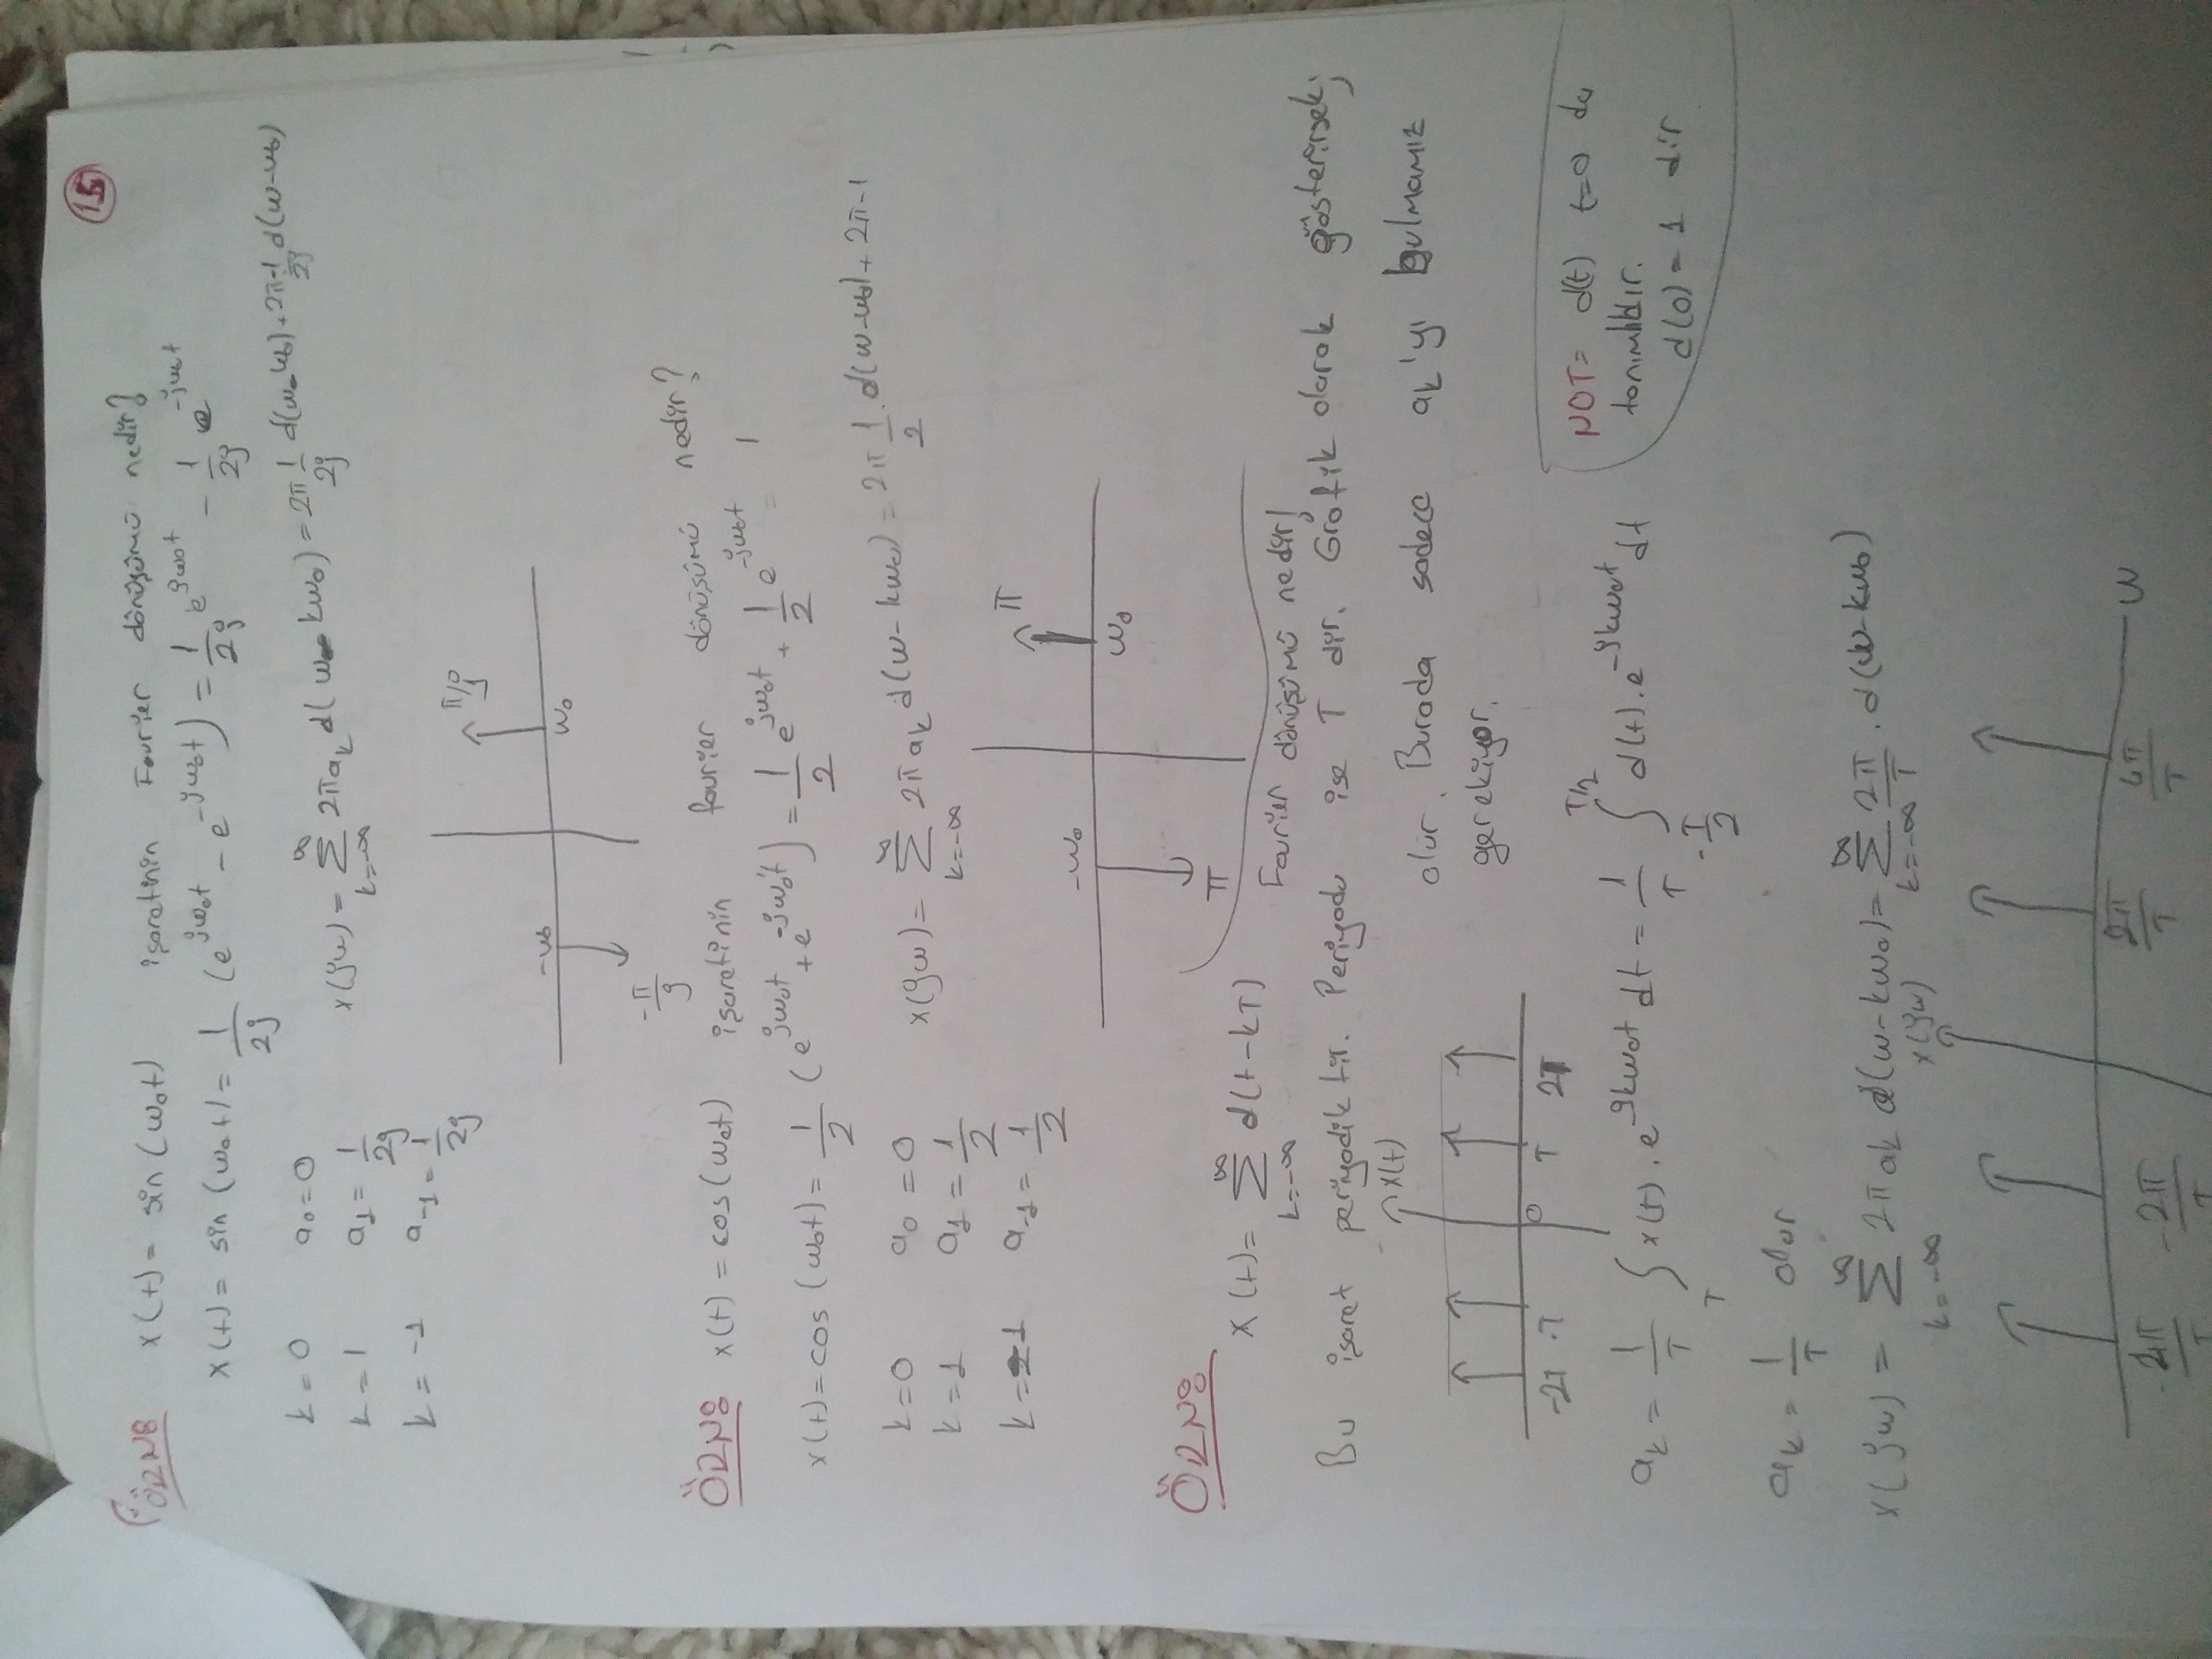 15
ÖRN8 x(t) = sin(w₀t) işaretinin Fourier dönüşümü nedir?
x(t) = sin(w₀t) = 1/2j (e^jw₀t - e^-jw₀t) = 1/2j e^jw₀t - 1/2j e^-jw₀t
k=0 a₀=0
k=1 a₁ = 1/2j
k=-1 a-₁ = -1/2j
x(jw) = ∑ k=-∞ ∞ 2πak d(w-kw₀) = 2π 1/2j d(w-w₀) + 2π -1/2j d(w-w₀)
-w₀ w₀ π/j
-π/j
ÖRN8 x(t) = cos(w₀t) işaretinin fourier dönüşümü nedir?
x(t) = cos(w₀t) = 1/2 (e^jw₀t + e^-jw₀t) = 1/2 e^jw₀t + 1/2 e^-jw₀t =
k=0 a₀ = 0
k=1 a₁ = 1/2
k=-1 a-₁ = 1/2
x(jw) = ∑ k=-∞ ∞ 2πak d(w-kw₀) = 2π 1/2 d(w-w₀) + 2π-1
-w₀ w₀ π
π
ÖRN8 x(t) = ∑ k=-∞ ∞ d(t-kT) Fourier dönüşümü nedir
Bu işaret periyodiktir. Periyodu ise T dir. Grafik olarak gösterirsek;
x(t)
-2T -T 0 T 2T
olur. Burada sadece ak'yı bulmamız
gerekiyor.
ak = 1/T ∫T x(t).e^-jkw₀t dt = 1/T ∫ -T/2 T/2 d(t).e^-jkw₀t dt
NOT= d(t) t=0 da
tanımlıdır.
d(0) = 1 dir
ak = 1/T olur
x(jw) = ∑ k=-∞ ∞ 2πak d(w-kw₀) = ∑ k=-∞ ∞ 2π/T . d(w-kw₀)
x(jw)
-4π/T -2π/T 2π/T 4π/T w